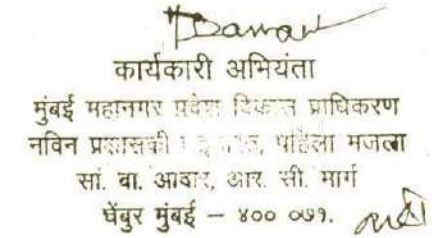 कार्यकारी अभियंता
मुंबई महानगर प्रदेश विकास प्राधिकरण
नविन प्रशासकी इमारत, पहिला मजला
सां. वा. आवार, आर. सी. मार्ग
चेंबुर मुंबई – ४०० ०७१.